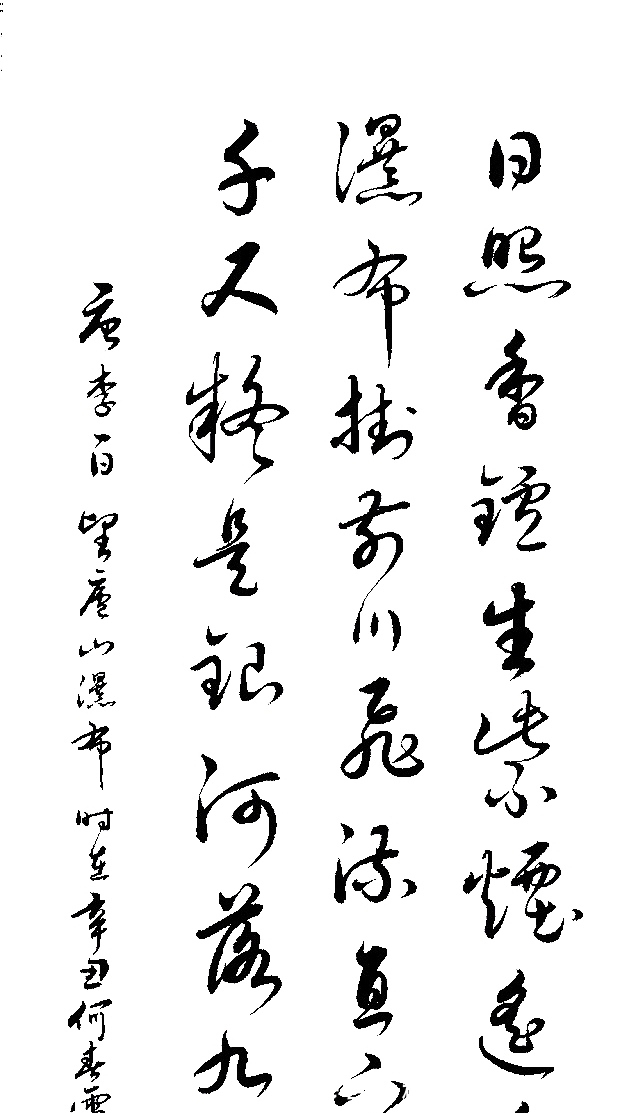 日照香鑪生紫煙遙
瀑布掛前川飛流直下
千尺疑是銀河落九
唐李白望廬山瀑布時在辛丑何春